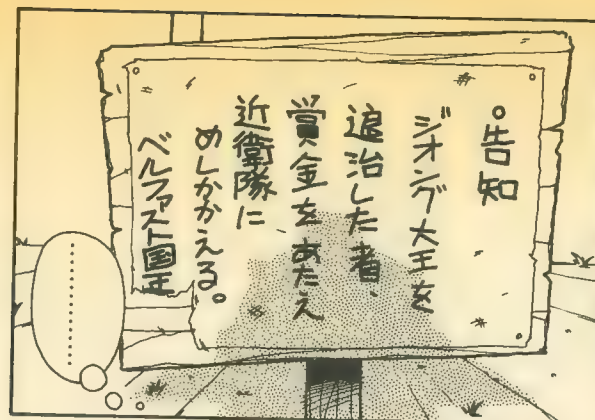 。告知
ジオング大王を
退治した者、
賞金をあたえ
近衛隊に
めしかかえる。
ベルファスト国王
………